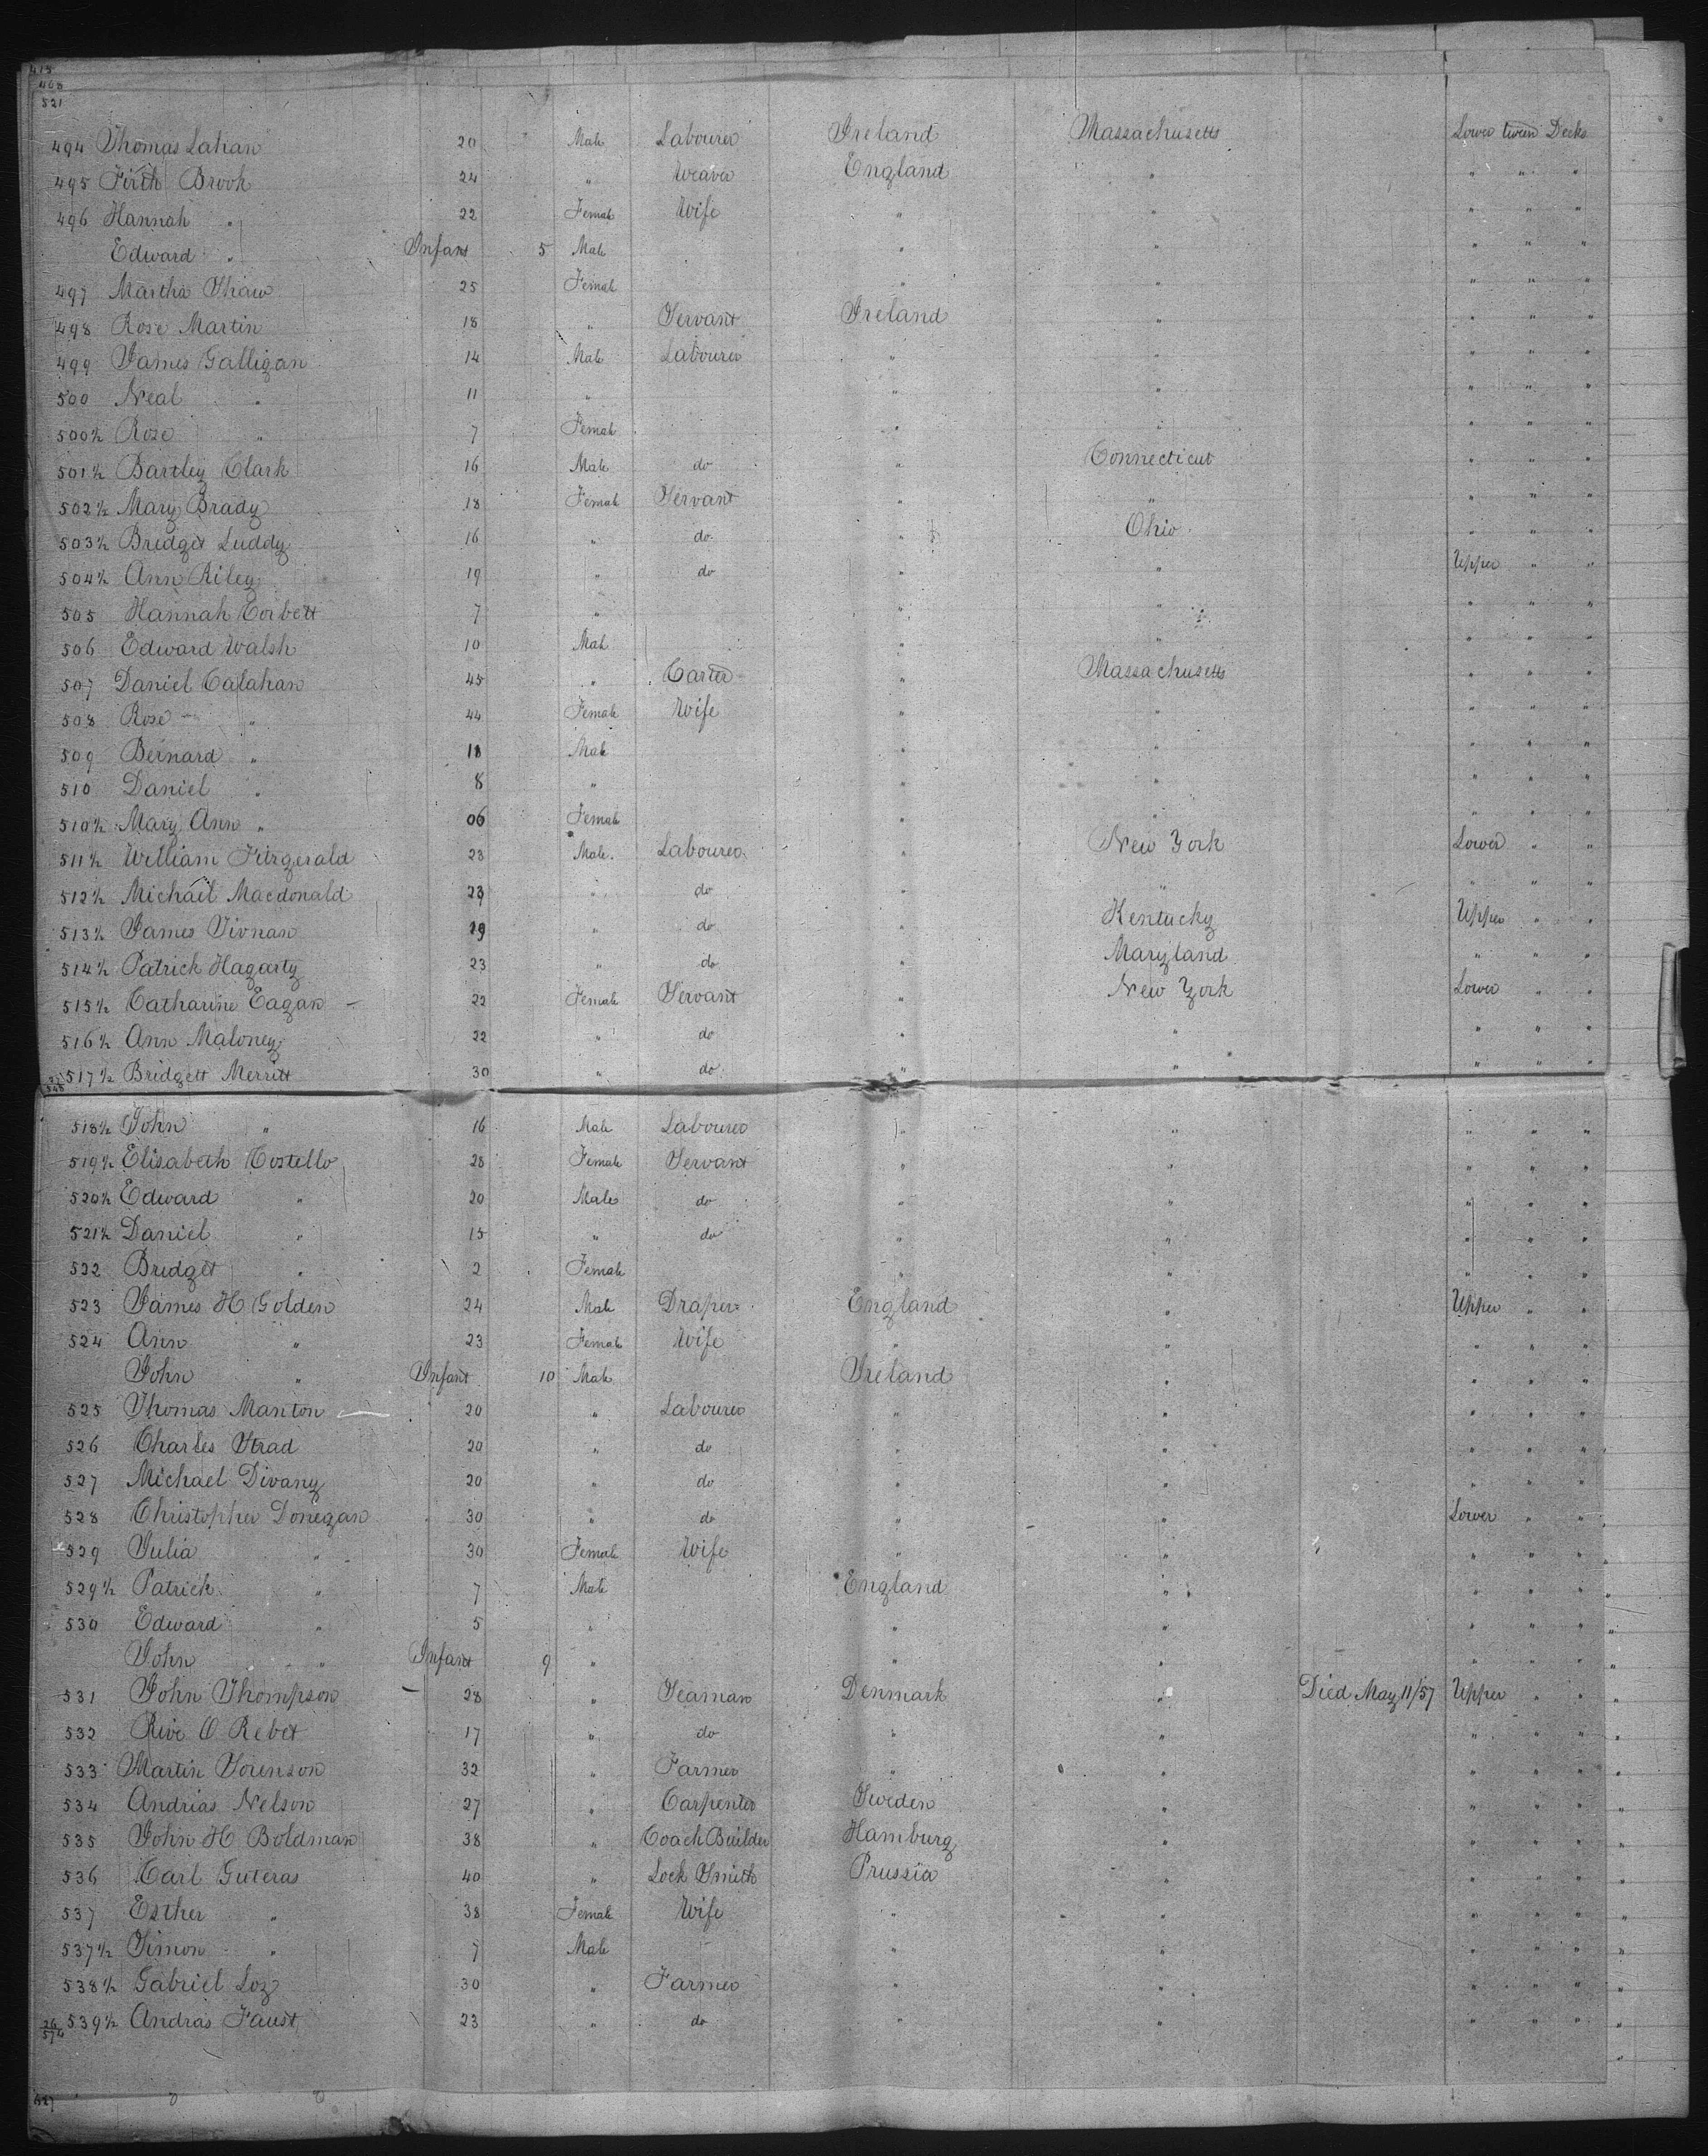 415
468
521
494 Thomas Lahan 20 Male Labourer Ireland Massachusetts Lower tween Decks
495 Firth Brook 24 " Weaver England " " " "
496 Hannah " 22 Female Wife " " " " "
Edward " Infant 5 Male " " " " "
497 Martha Shaw 25 Female " " " " "
498 Rose Martin 18 " Servant Ireland " " " "
499 James Galligan 14 Male Labourer " " " " "
500 Neal " 11 " " " " " "
500½ Rose " 7 Female " " " " "
501½ Bartley Clark 16 Male do " Connecticut " " "
502½ Mary Brady 18 Female Servant " " " " "
503½ Bridget Luddy 16 " do " Ohio " " "
504½ Ann Riley 19 " do " " Upper " "
505 Hannah Corbett 7 " " " " " "
506 Edward Walsh 10 Male " " " " "
507 Daniel Calahan 45 " Carter " Massachusetts " " "
508 Rose " 44 Female Wife " " " " "
509 Bernard " 18 Male " " " " "
510 Daniel " 8 " " " " " "
510½ Mary Ann " 06 Female " " " " "
511½ William Fitzgerald 28 Male Labourer " New York Lower " "
512½ Michael Macdonald 23 " do " " " " "
513½ James Vivnan 29 " do " Kentucky Upper " "
514½ Patrick Hagarty 23 " do " Maryland " " "
515½ Catharine Eagan 22 Female Servant " New York Lower " "
516½ Ann Maloney 22 " do " " " " "
517½ Bridgett Merritt 30 " do " " " " "
518½ John " 16 Male Labourer " " " " "
519½ Elisabeth Costello 28 Female Servant " " " " "
520½ Edward " 20 Male do " " " " "
521½ Daniel " 15 " do " " " " "
522 Bridget " 2 Female " " " " "
523 James H Golden 24 Male Draper England " Upper " "
524 Ann " 23 Female Wife " " " " "
John " Infant 10 Male Ireland " " " "
525 Thomas Manton 20 " Labourer " " " " "
526 Charles Strad 20 " do " " " " "
527 Michael Divany 20 " do " " " " "
528 Christopher Donegan 30 " do " " Lower " "
529 Julia " 30 Female Wife " " " " "
529½ Patrick " 7 Male England " " " "
530 Edward " 5 " " " " " "
John " Infant 9 " " " " " "
531 John Thompson 28 " Seaman Denmark " Died May 11/57 Upper " "
532 Rive O Rebet 17 " do " " " " "
533 Martin Sorenson 32 " Farmer " " " " "
534 Andrias Nelson 27 " Carpenter Sweden " " " "
535 John H Boldman 38 " Coach Builder Hamburg " " " "
536 Carl Guteras 40 " Lock Smith Prussia " " " "
537 Esther " 38 Female Wife " " " " "
537½ Simon " 7 Male " " " " "
538½ Gabriel Loz 30 " Farmer " " " " "
539½ Andras Faust 23 " do " " " " "